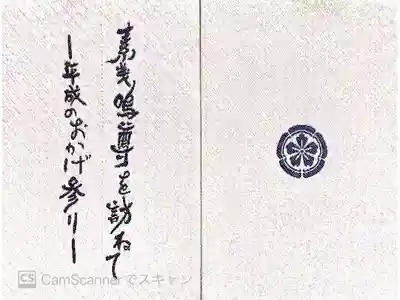 素戔嗚尊を訪ねて
ー年成のおかげ参りー
CS CamScannerでスキャン